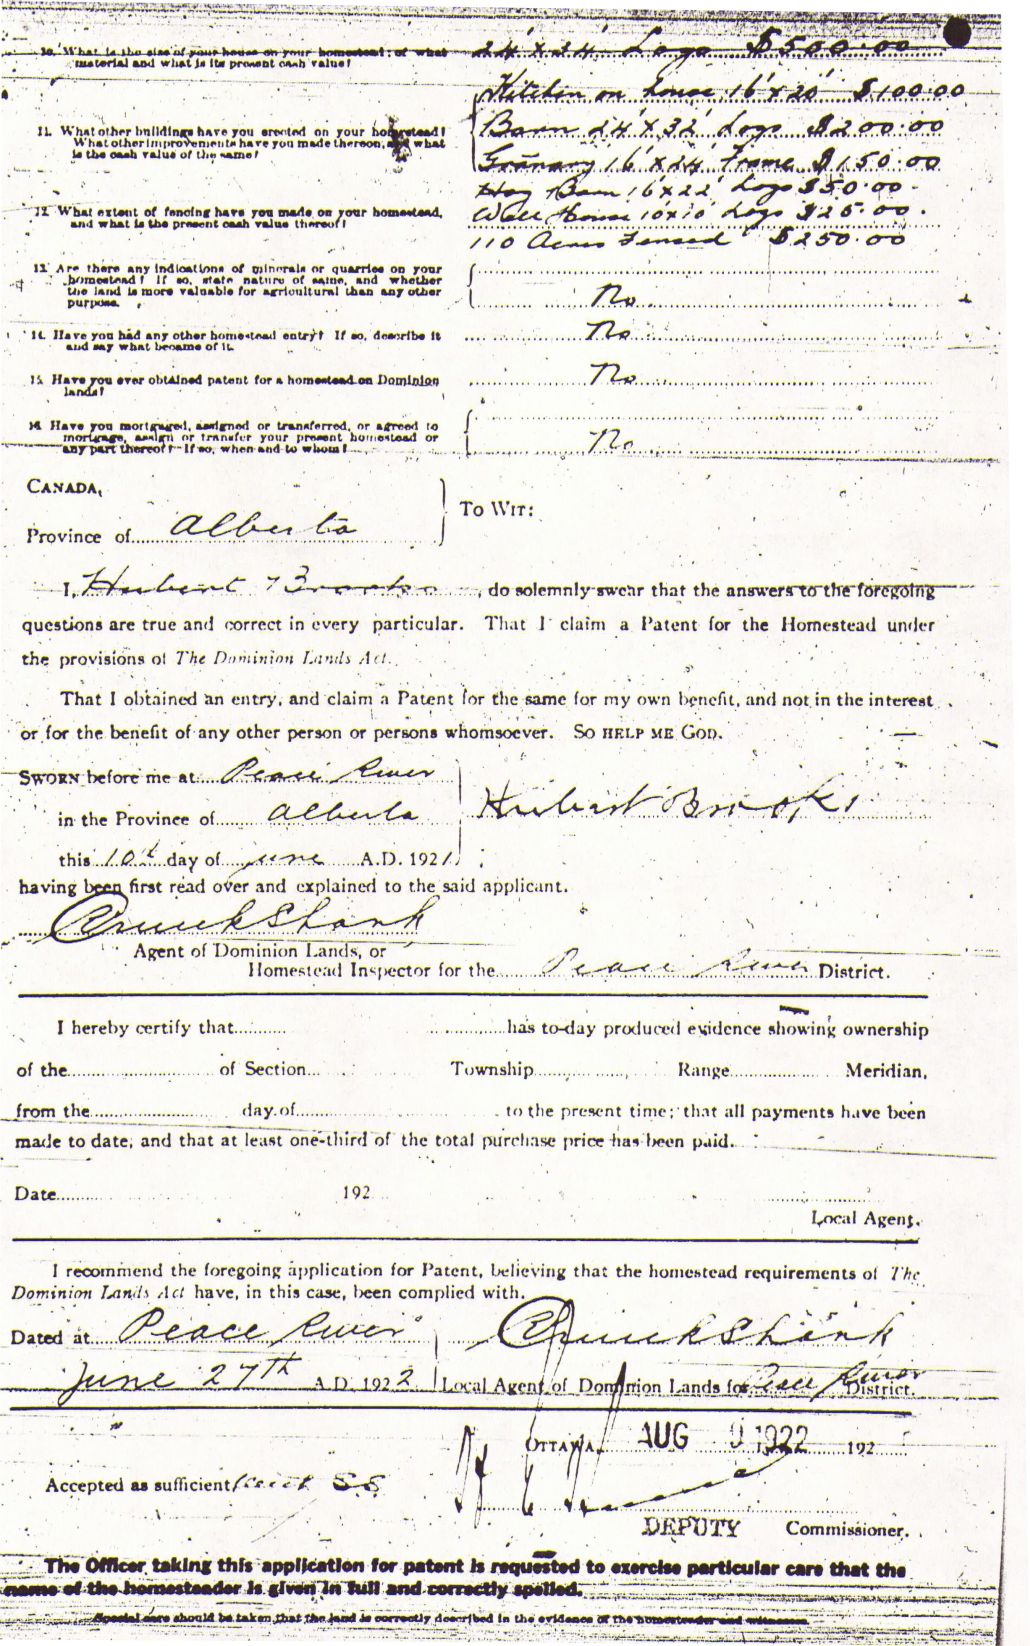 10. What is the size of your house on your homestead; of what 24' x 24' Logs $500.00
material and what is its present cash value?
Kitchen on house 16' x 20' $100.00
11. What other buildings have you erected on your homestead? Barn 24' x 32' Logs $200.00
What other improvements have you made thereon, and what
is the cash value of the same? Granary 16' x 24' Frame $150.00
Hog Barn 16' x 22' Logs $50.00
12. What extent of fencing have you made on your homestead, Well House 10' x 10' Logs $25.00.
and what is the present cash value thereof?
110 Acres Fenced $250.00
13. Are there any indications of minerals or quarries on your
homestead? If so, state nature of same, and whether
the land is more valuable for agricultural than any other No
purpose.
14. Have you had any other homestead entry? If so, describe it No
and say what became of it.
15. Have you ever obtained patent for a homestead on Dominion No
lands?
16. Have you mortgaged, assigned or transferred, or agreed to
mortgage, assign or transfer your present homestead or No
any part thereof? If so, when and to whom?
CANADA,
To WIT:
Province of Alberta
I, Herbert Brooks, do solemnly swear that the answers to the foregoing
questions are true and correct in every particular. That I claim a Patent for the Homestead under
the provisions of The Dominion Lands Act.
That I obtained an entry, and claim a Patent for the same for my own benefit, and not in the interest
or for the benefit of any other person or persons whomsoever. SO HELP ME GOD.
SWORN before me at Peace River
in the Province of Alberta Herbert Brooks
this 10th day of June A.D. 1921
having been first read over and explained to the said applicant.
Cruickshank
Agent of Dominion Lands, or
Homestead Inspector for the Peace River District.
I hereby certify that has to-day produced evidence showing ownership
of the of Section Township Range Meridian,
from the day of to the present time; that all payments have been
made to date, and that at least one-third of the total purchase price has been paid.
Date 192
Local Agent.
I recommend the foregoing application for Patent, believing that the homestead requirements of The
Dominion Lands Act have, in this case, been complied with.
Dated at Peace River Cruickshank
June 27th A.D. 1922 Local Agent of Dominion Lands for Peace River District.
OTTAWA, AUG 9 1922 192
Accepted as sufficient
DEPUTY Commissioner.
The Officer taking this application for patent is requested to exercise particular care that the
name of the homesteader is given in full and correctly spelled.
Special care should be taken that the land is correctly described in the evidence of the homesteader and witnesses.